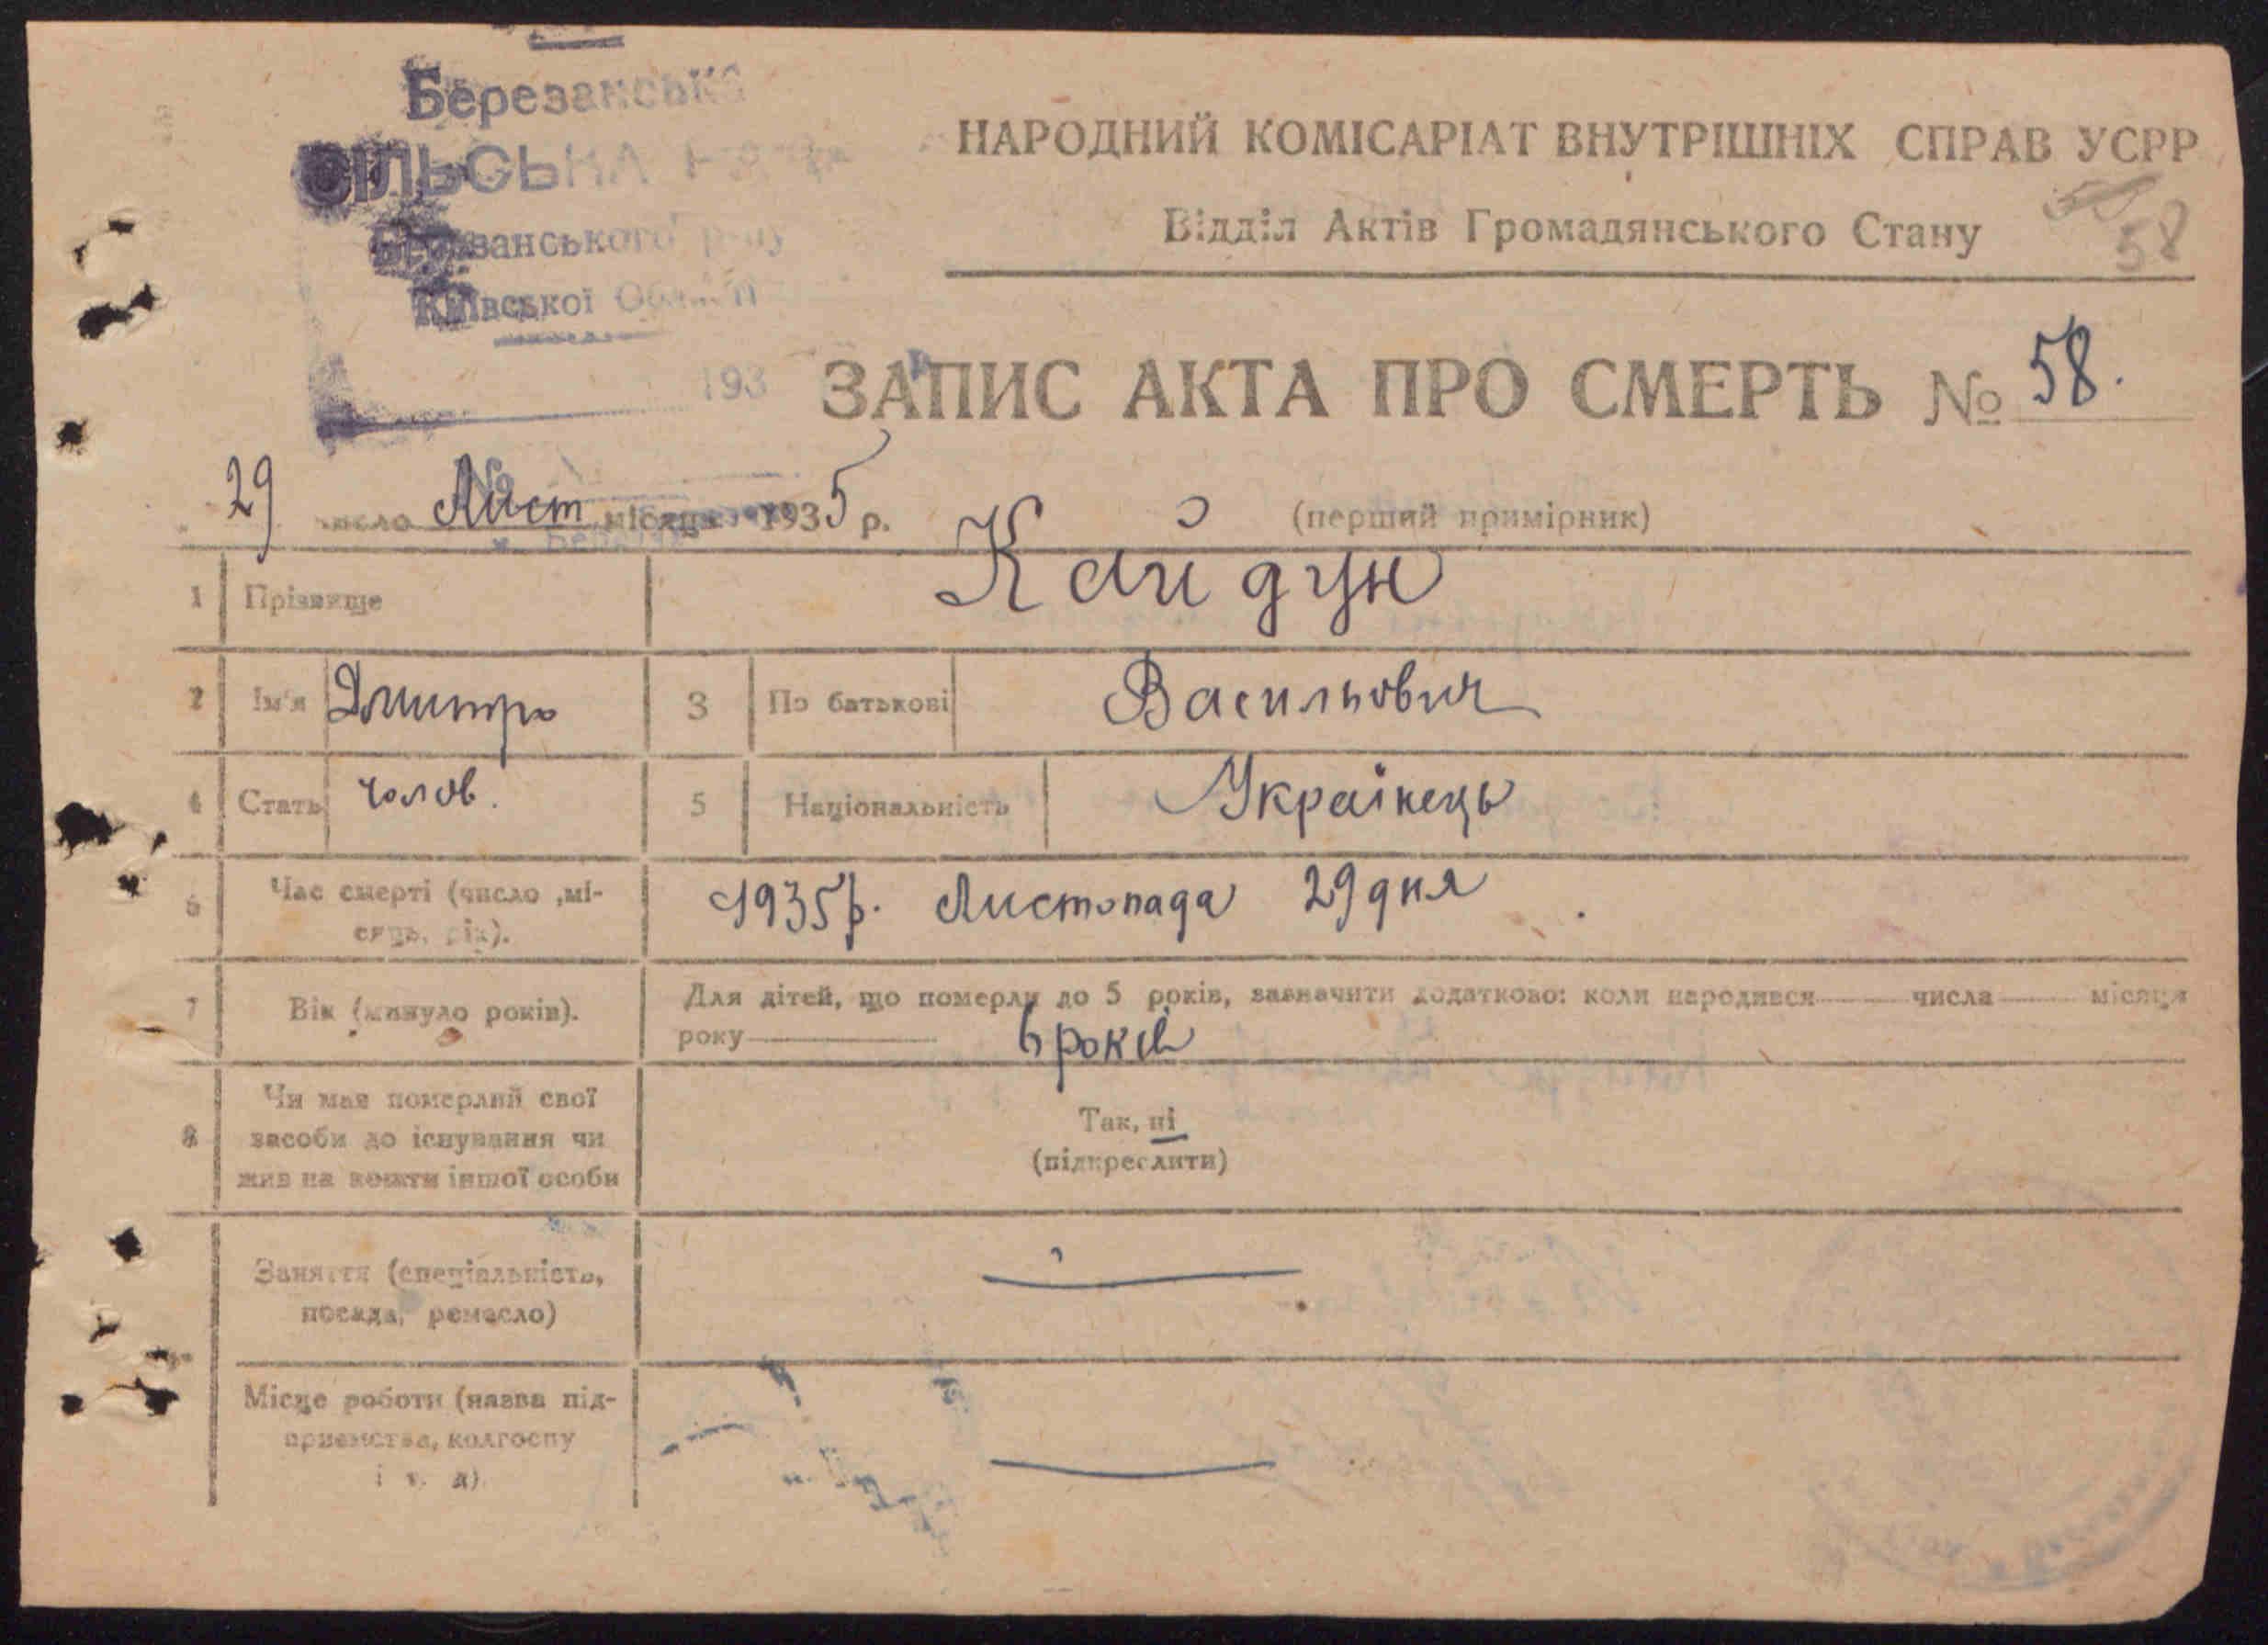 Березанська
СІЛЬСЬКА
Березанського р-ну
Київської Області
193
НАРОДНИЙ КОМІСАРІАТ ВНУТРІШНІХ СПРАВ УСРР
Відділ Актів Громадянського Стану
58
ЗАПИС АКТА ПРО СМЕРТЬ № 58.
29 число Лист місяця 1935 р.
(перший примірник)
1 Прізвище Кайдун
2 Ім'я Дмитро 3 По батькові Васильович
4 Стать чолов. 5 Національність Українець
6 Час смерті (число ,мі-
сяць, рік). 1935 р. Листопада 29 дня
7 Вік (минуло років). Для дітей, що померли до 5 років, зазначити додатково: коли народився числа місяця
року 6 років
8 Чи мав померлий свої
засоби до існування чи
жив на кошти іншої особи
Так, ні
(підкреслити)
Заняття (спеціальність,
посада, ремесло)
Місце роботи (назва під-
приємства, колгоспу
і т. д)